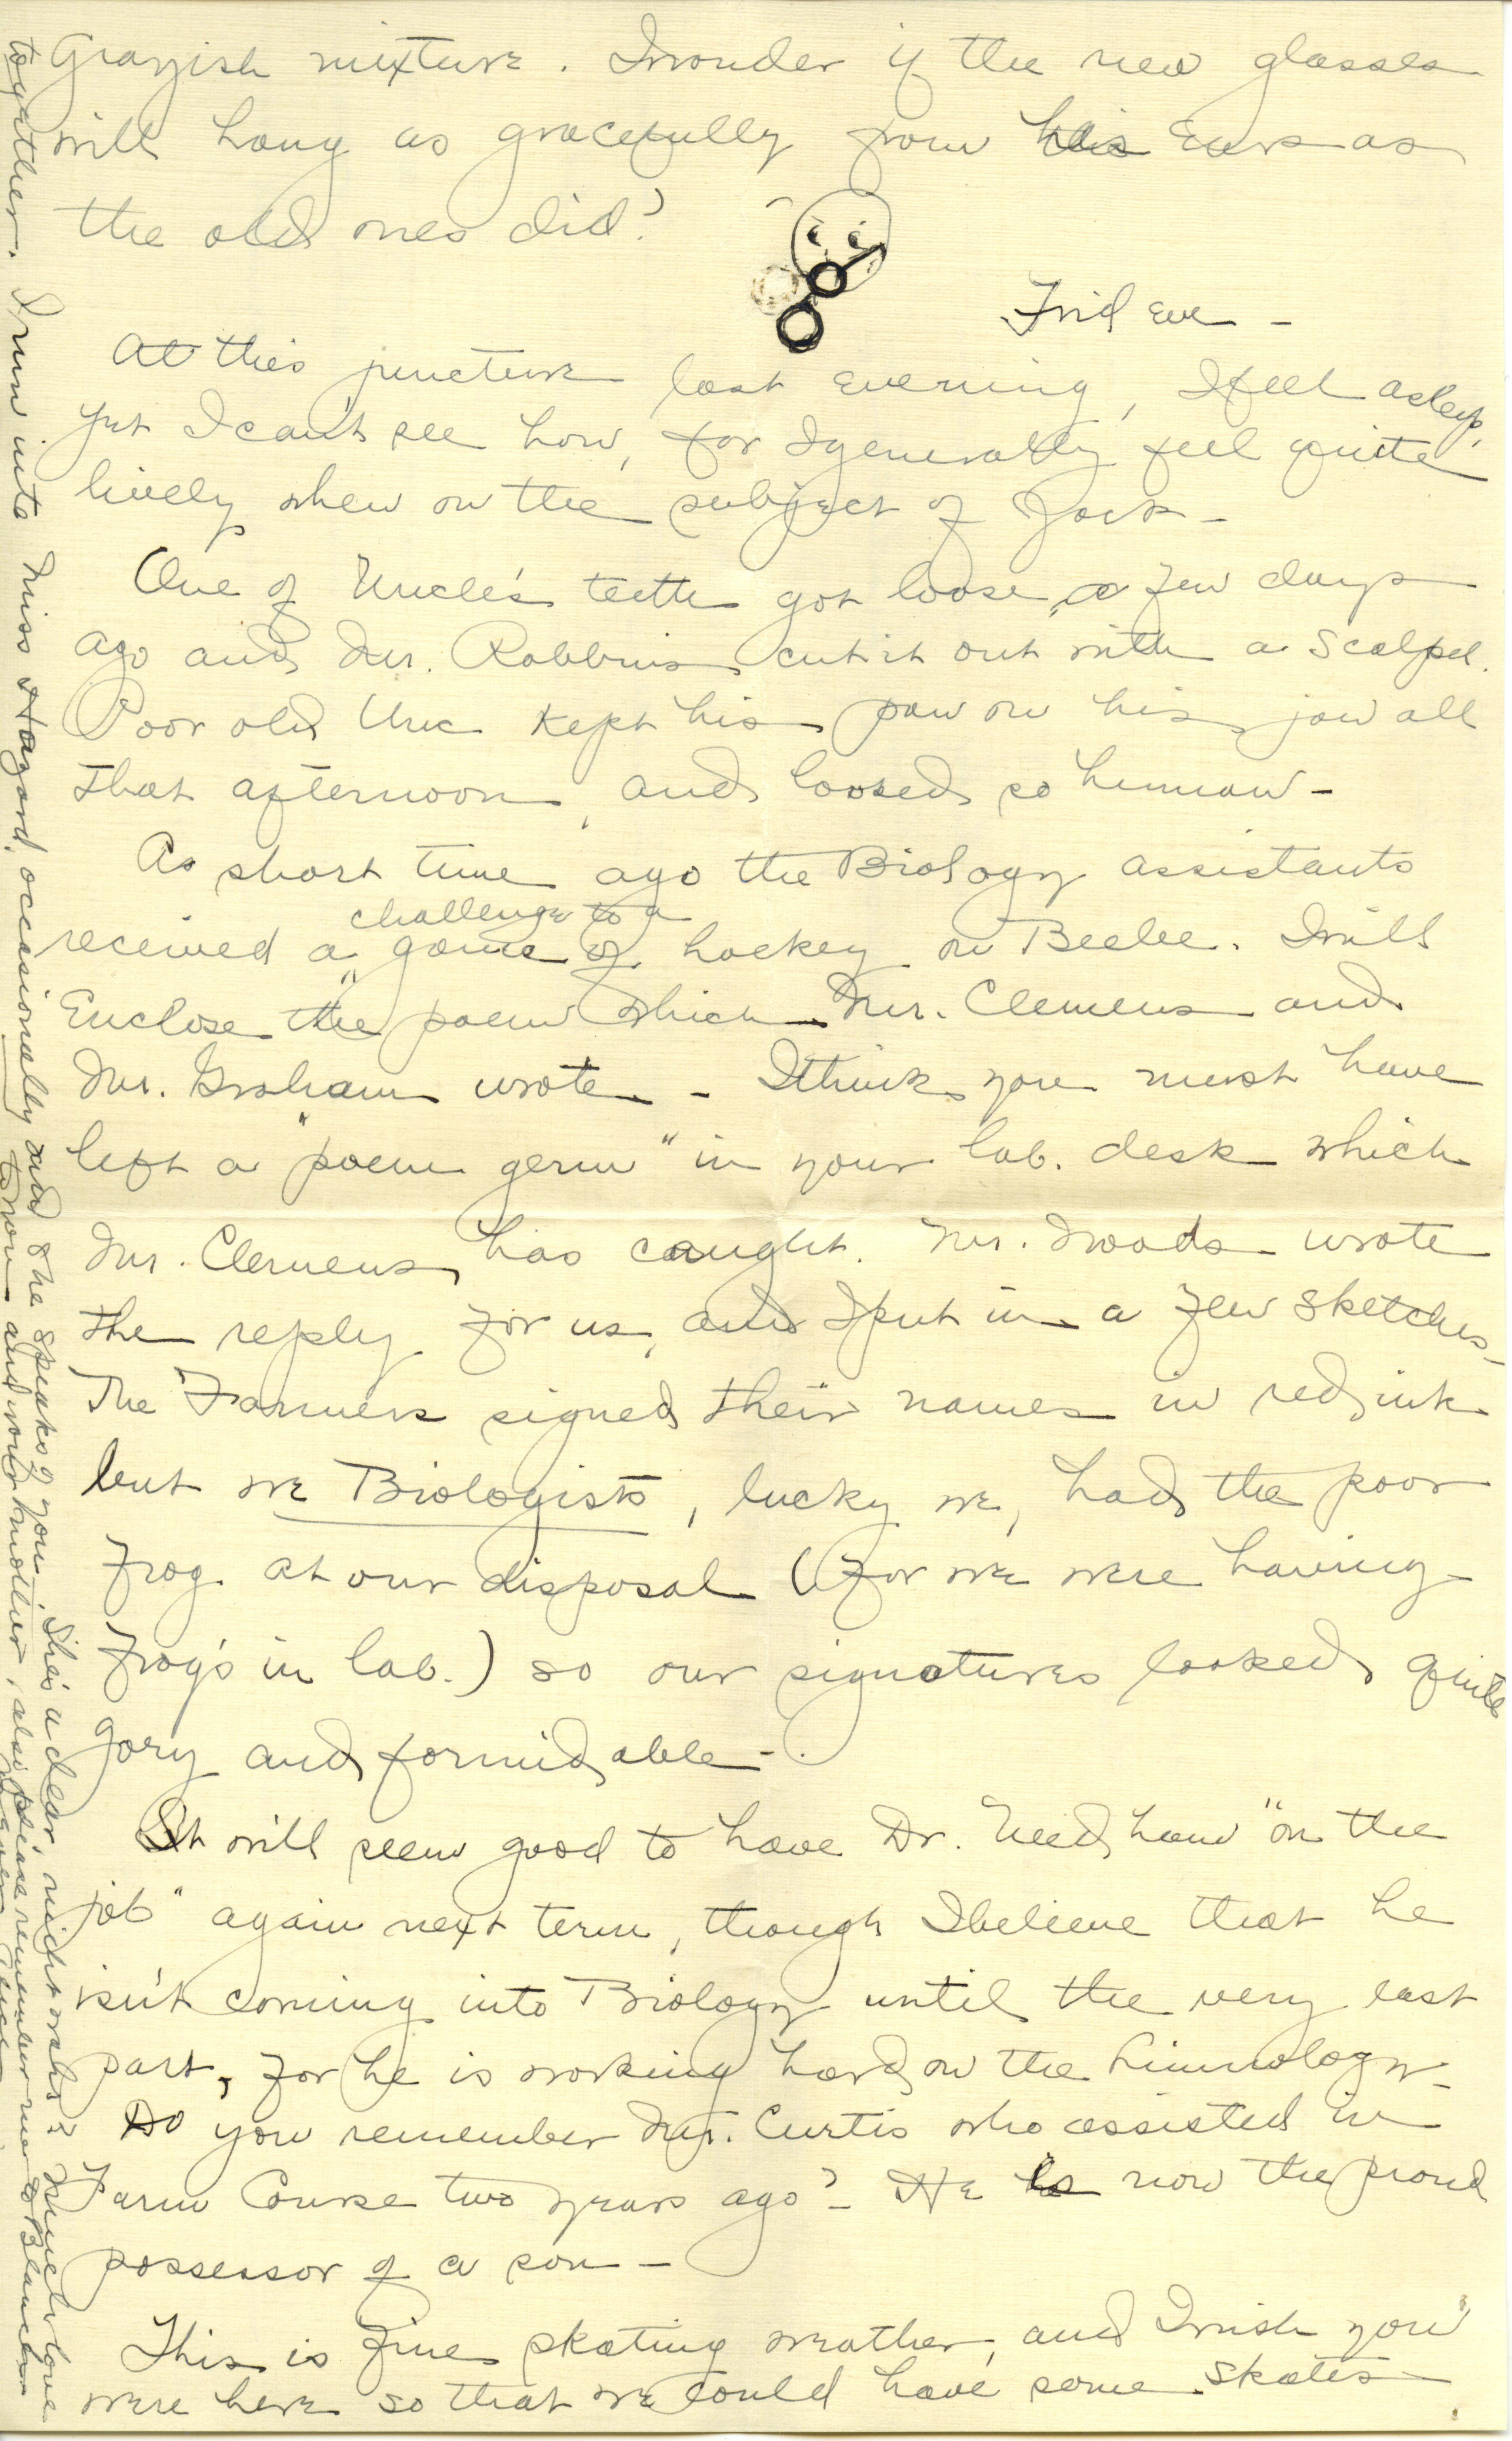 Grayish mixture. I wonder if the new glasses
will hang as gracefully from his Ears as
the old ones did?
Frid Eve -
At this juncture last evening, I fell asleep,
yet I can't see how, for I generally feel quite
lively when on the subject of Jack -
One of Uncle's teeth got loose a few days
ago and Mr. Robbins cut it out with a scalpel.
Poor old Unc kept his paw on his jaw all
that afternoon, and looked so human -
A short time ago the Biology assistants
challenge to a
received a game of hockey on Beebe. I will
Enclose the poem which Mr. Clemens and
Mr. Graham wrote. - I think you must have
left a "poem germ" in your lab. desk which
Mr. Clemens has caught. Mr. Woods wrote
the reply for us, and I put in a few sketches -
The Farmers signed their names in red ink
but we Biologists, lucky we, had the poor
frog at our disposal (for we were having
frogs in lab.) so our signatures looked quite
gory and formidable -.
It will seem good to have Dr. Needham "on the
job" again next term, though I believe that he
isn't coming into Biology until the very last
part, for he is working hard on the Limnology -
Do you remember Mr. Curtis who assisted in
Farm Course two years ago? - He is now the proud
possessor of a son -
This is fine skating weather, and I wish you
were here so that we could have some skates
together. I run into Miss Hazard, occasionally and she speaks of you. She's a dear, night owls & Much love
to you and your mother, also please remember me to Blanche